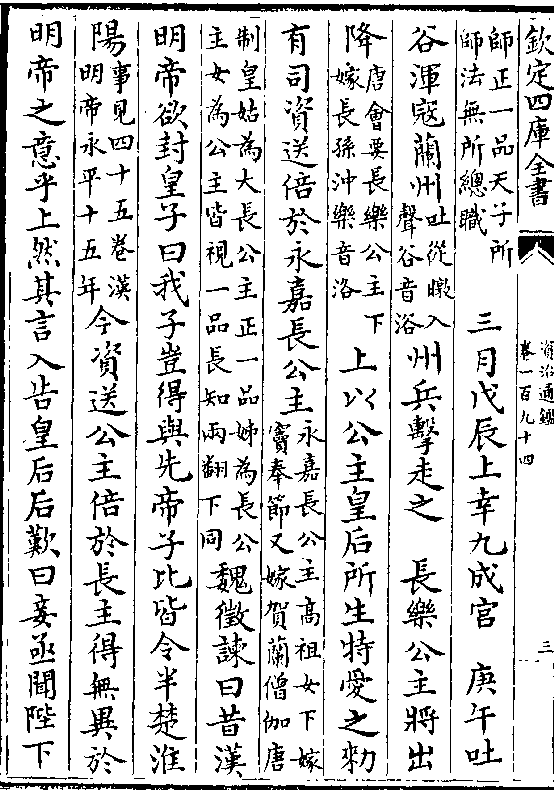 欽定四庫全書
資治通鑑
卷一百九十四
三
師正一品天子所
師法無所總職
三月戊辰上幸九成宮　庚午吐
谷渾寇蘭州
吐從暾入
聲谷音浴
州兵擊走之　長樂公主將出
降
唐會要長樂公主下
嫁長孫沖樂音洛
上以公主皇后所生特愛之勅
有司資送倍於永嘉長公主
永嘉長公主高祖女下嫁
竇奉節又嫁賀蘭僧伽唐
制皇姑為大長公主正一品姊為長公
主女為公主皆視一品長知兩翻下同
魏徵諫曰昔漢
明帝欲封皇子曰我子豈得與先帝子比皆令半楚淮
陽
事見四十五卷漢
明帝永平十五年
今資送公主倍於長主得無異於
明帝之意乎上然其言入告皇后后歎曰妾亟聞陛下